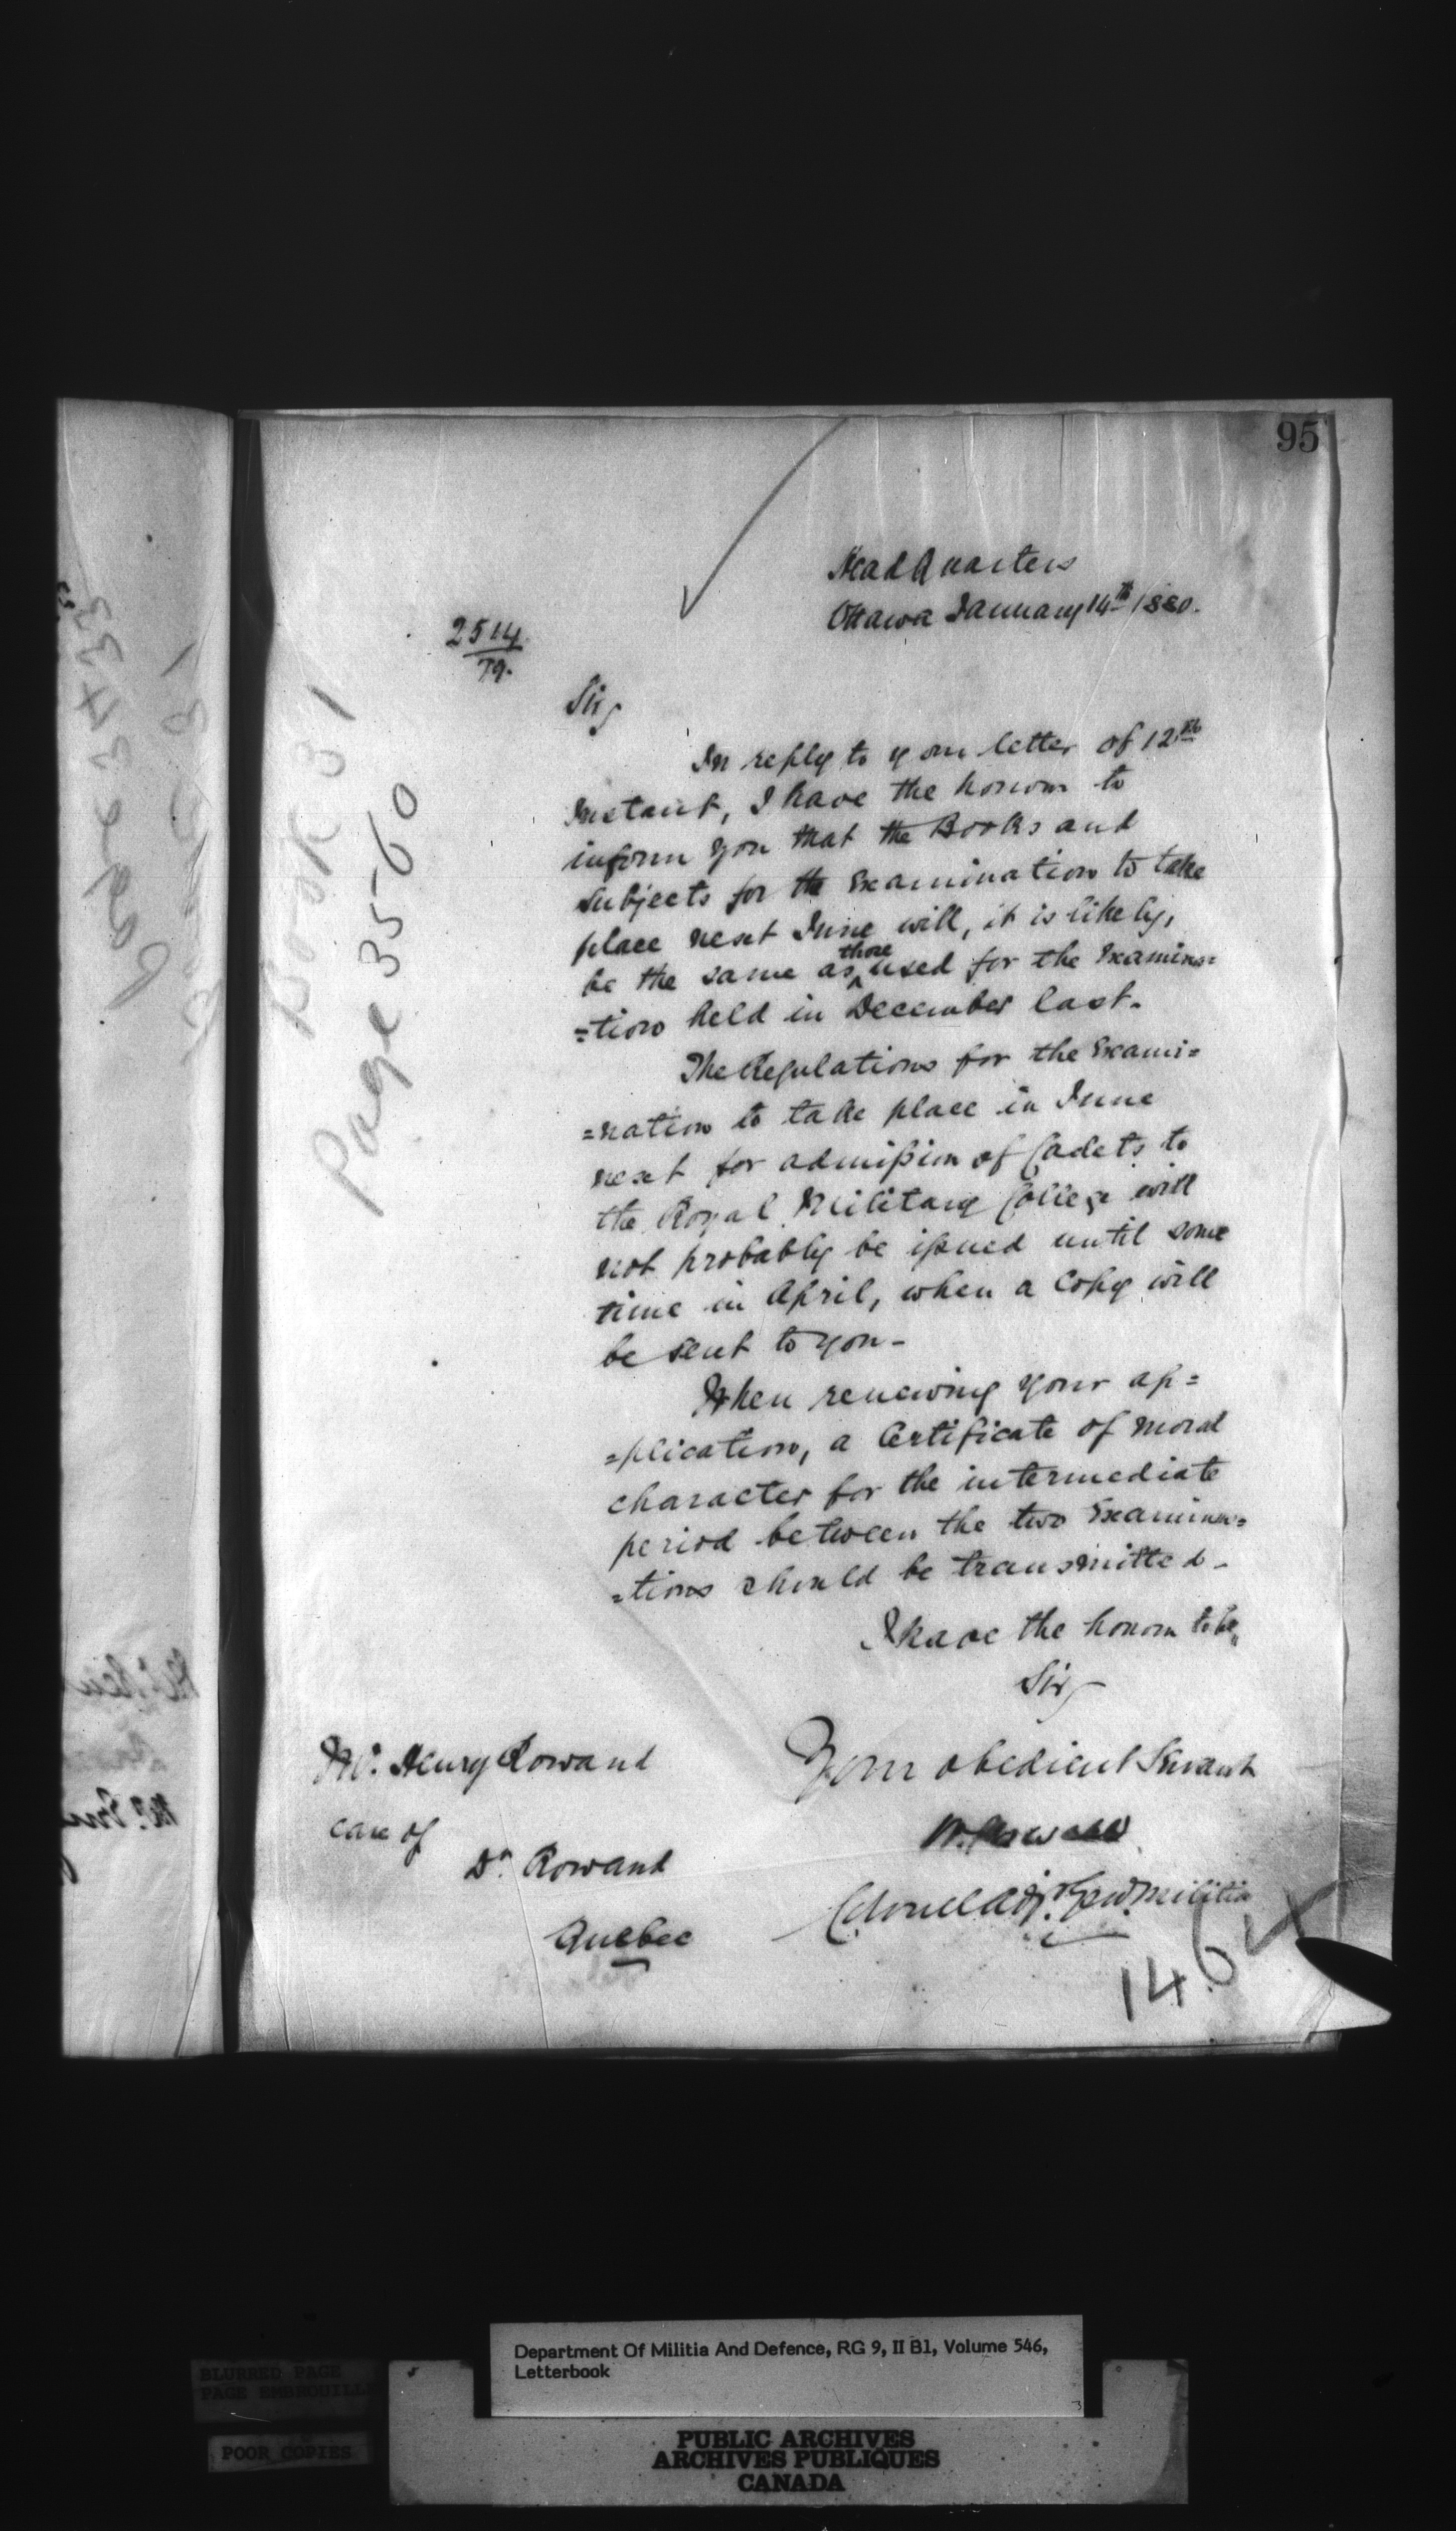 95
Head Quarters
Ottawa January 14th 1880.
2514
79.
Book 31
Page 3560
Sir,
In reply to your letter of 12th
Instant, I have the honour to
inform you that the Books and
Subjects for the Examination to take
place next June will, it is likely,
be the same as those used for the Examina=
=tion held in December last.
The Regulations for the Exami=
=nation to take place in June
next for admission of Cadets to
the Royal Military College will
not probably be issued until some
time in April, when a Copy will
be sent to you -
When renewing your ap=
=plication, a Certificate of moral
character for the intermediate
period between the two Examina=
=tions should be transmitted -
I have the honour to be,
Sir,
Your obedient Servant
W. Powell
Colonel Adjt. Genl. Militia
Mr. Henry Rowand
care of
Dr Rowand
Quebec
Page 3433
Department Of Militia And Defence, RG 9, II B1, Volume 546,
Letterbook
BLURRED PAGE
PAGE EMBROUILL
POOR COPIES
PUBLIC ARCHIVES
ARCHIVES PUBLIQUES
CANADA